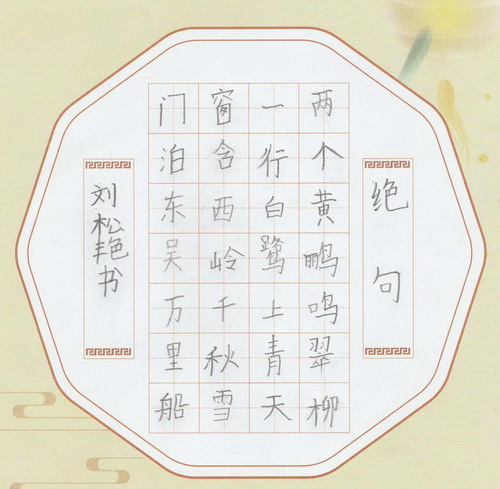 绝句
两个黄鹂鸣翠柳
一行白鹭上青天
窗含西岭千秋雪
门泊东吴万里船
刘松艳书